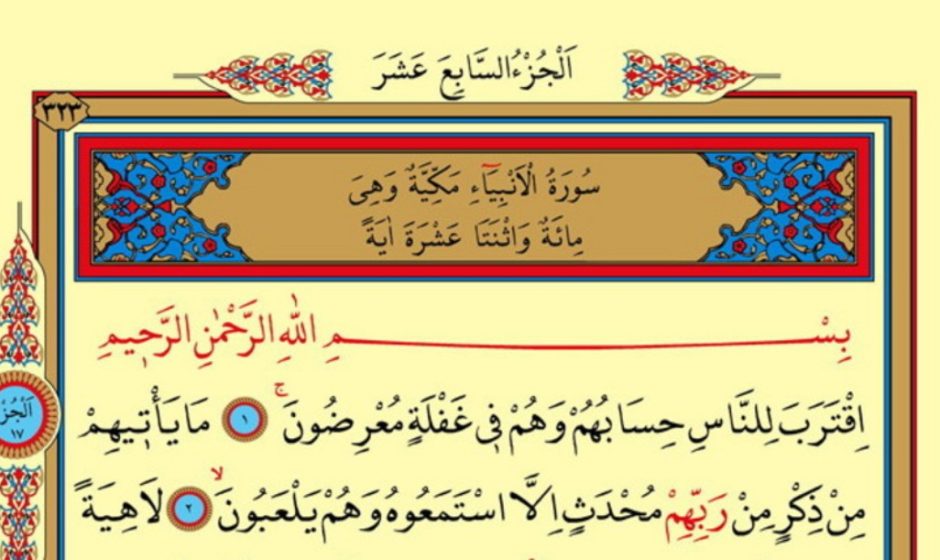 اَلْجُزْءُ السَّابِعَ عَشَرَ
٣٢٣
سُورَةُ الْاَنْبِيَٓاءِ مَكِّيَّةٌ وَهِىَ
مِائَةٌ وَاثْنَتَا عَشْرَةَ اٰيَةً
بِسْمِ اللّٰهِ الرَّحْمٰنِ الرَّحٖيمِ
اِقْتَرَبَ لِلنَّاسِ حِسَابُهُمْ وَهُمْ فٖى غَفْلَةٍ مُعْرِضُونَۚ ١ مَا يَأْتٖيهِمْ
اَلْجُزْ
١٧
مِنْ ذِكْرٍ مِنْ رَبِّهِمْ مُحْدَثٍ اِلَّا اسْتَمَعُوهُ وَهُمْ يَلْعَبُونَۙ ٢ لَاهِيَةً